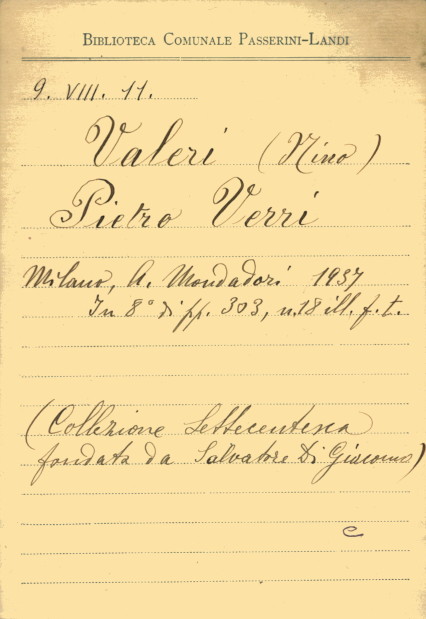 BIBLIOTECA COMUNALE PASSERINI-LANDI
9. VIII. 11.
Valeri (Nino)
Pietro Verri
Milano, A. Mondadori 1937
In 8° di pp. 303, n. 18 ill. f. t.
(Collezione Settecentesca
fondata da Salvatore Di Giacomo)
e